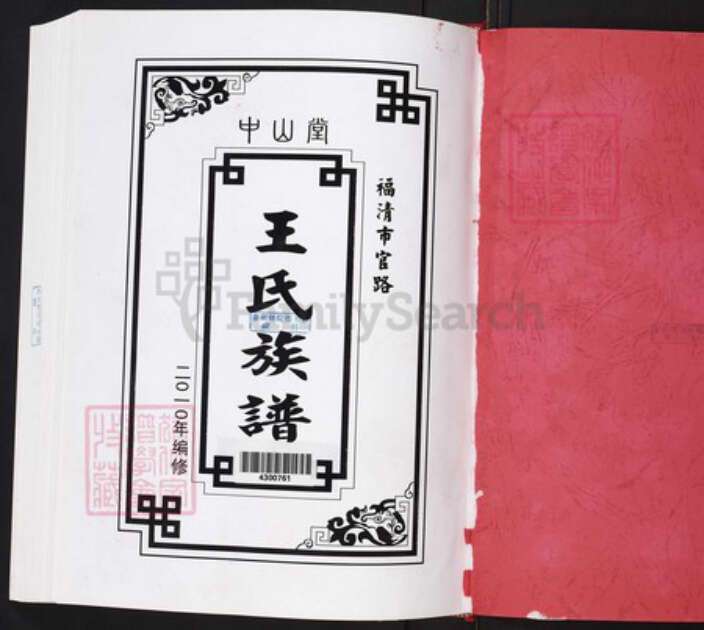 中山堂
福清市官路
王氏族譜
二〇一〇年编修
4300761
FamilySearch